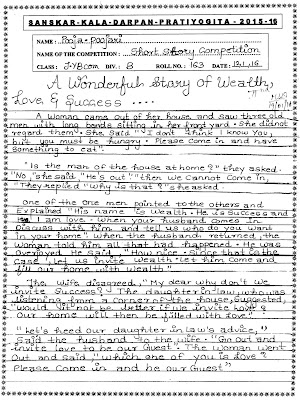 SANSKAR-KALA-DARPAN-PRATIYOGITA - 2015-16
NAME : Pooja - poojari
NAME OF THE COMPETITION : Short Story Competition
CLASS : JYBcom DIV.: B ROLL NO.: 163 DATE : 12/1/16
A Wonderful Story of Wealth,
Love & Success ....
A woman came out of her house and saw three old
men with long beards sitting in her front yard. She did not
regard them. She said "I don't think I know You,
but you must be hungry. Please come in and have
something to eat".
"Is the man of the house at home?" they asked.
"No", she said. "He's out". "then we Cannot Come in,"
They replied "Why is that?" she asked
one of the one men pointed to the others and
Explained "His name is Wealth. He is Success and
I am love. When your husband comes in
Discuss with him and tell us who do you want
in your home" When the husband returned, the
Woman told him all that had happened. He was
overjoyed. He said, "How nice. Since that is the
case let us invite Wealth. Let him come and
fill our home with Wealth"
The wife disagreed, "My dear why don't we
invite Success?" The daughter in law, who was
listening from a corner of the house, Suggested,
would it not be better if we invite love?
Our home will then be filled with love"
"Let's heed our daughter in law's advice,"
Said the husband to the wife. "Go out and
invite love to be our Guest". The woman went
Out and said, "which one of you is love?
Please Come in and be our Guest"